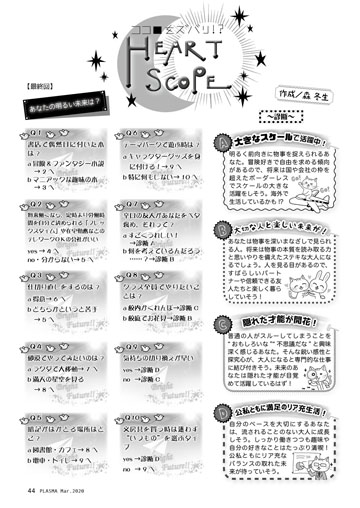 ココ■をズバリ!?
HEART
SCOPE
【最終回】
あなたの明るい未来は?
作成/森 冬生
Q1
書店で偶然目に付いた本
は?
a 冒険&ファンタジー小説
→2へ
b マニアックな趣味の本
→3へ
yes→4へ
no・分からない→5へ
Q3
仕切り直しをするのは?
a 得意→6へ
→5へ
Q4
a ラクダで大移動→7へ
b 満天の星空を見る
→8へ
Q5
a 図書館・カフェ→8へ
b 電車・トイレ→9へ
Q6
テーマパークで遊ぶ時は?
a キャラクターグッズを身
に付ける!→9へ
b 特に何もしない→10へ
Q7
辛口の友人があなたをベタ
褒め、どれって?
→診断A
b 何を考えているんだろう
……?→診断B
Q8
a 校内かくれんぼ→診断C
b 校庭でお花見→診断B
Q9
気持ちの切り換えが早い
yes→診断D
no→診断C
Q10
文房具を買う時は迷わず
“いつもの”を選ぶタイ
プ
yes→診断D
no→9へ
~診断~
A
大きなスケールで活躍中!
明るく前向きに物事を捉えられるあ
なた。冒険好きで自由を求める傾向
があるので、将来は国や会社の枠を
超えたボーダーレス
でスケールの大きな
活躍をしそう。海外で
生活しているかも!?
B
大切な人と楽しい未来が!
あなたは物事を深いまなざしで見られる
人。将来は物事の本質を読み取る力
と思いやりを備えたステキな大人にな
るでしょう。人を見る目があるので、
すばらしいパート
ナーや信頼できる友
人たちと楽しく暮ら
していそう!
C
隠れた才能が開花!
普通の人がスルーしてしまうことを
“おもしろいな”“不思議だな”と興味
深く感じるあなた。そんな鋭い感性と
探究心が、大人になると専門的な仕事
に結び付きそう。未来のあ
なたは隠れた才能が目覚
めて活躍しているはず!
D
公私ともに満足のリア充生活!
自分のペースを大切にするあなた
は、流されることのない大人に成長
しそう。しっかり働きつつも趣味や
自分の好きなことはたっぷり満喫!
公私ともにリア充な
バランスの取れた未
来が待っていそう。
44 PLASMA Mar.2020